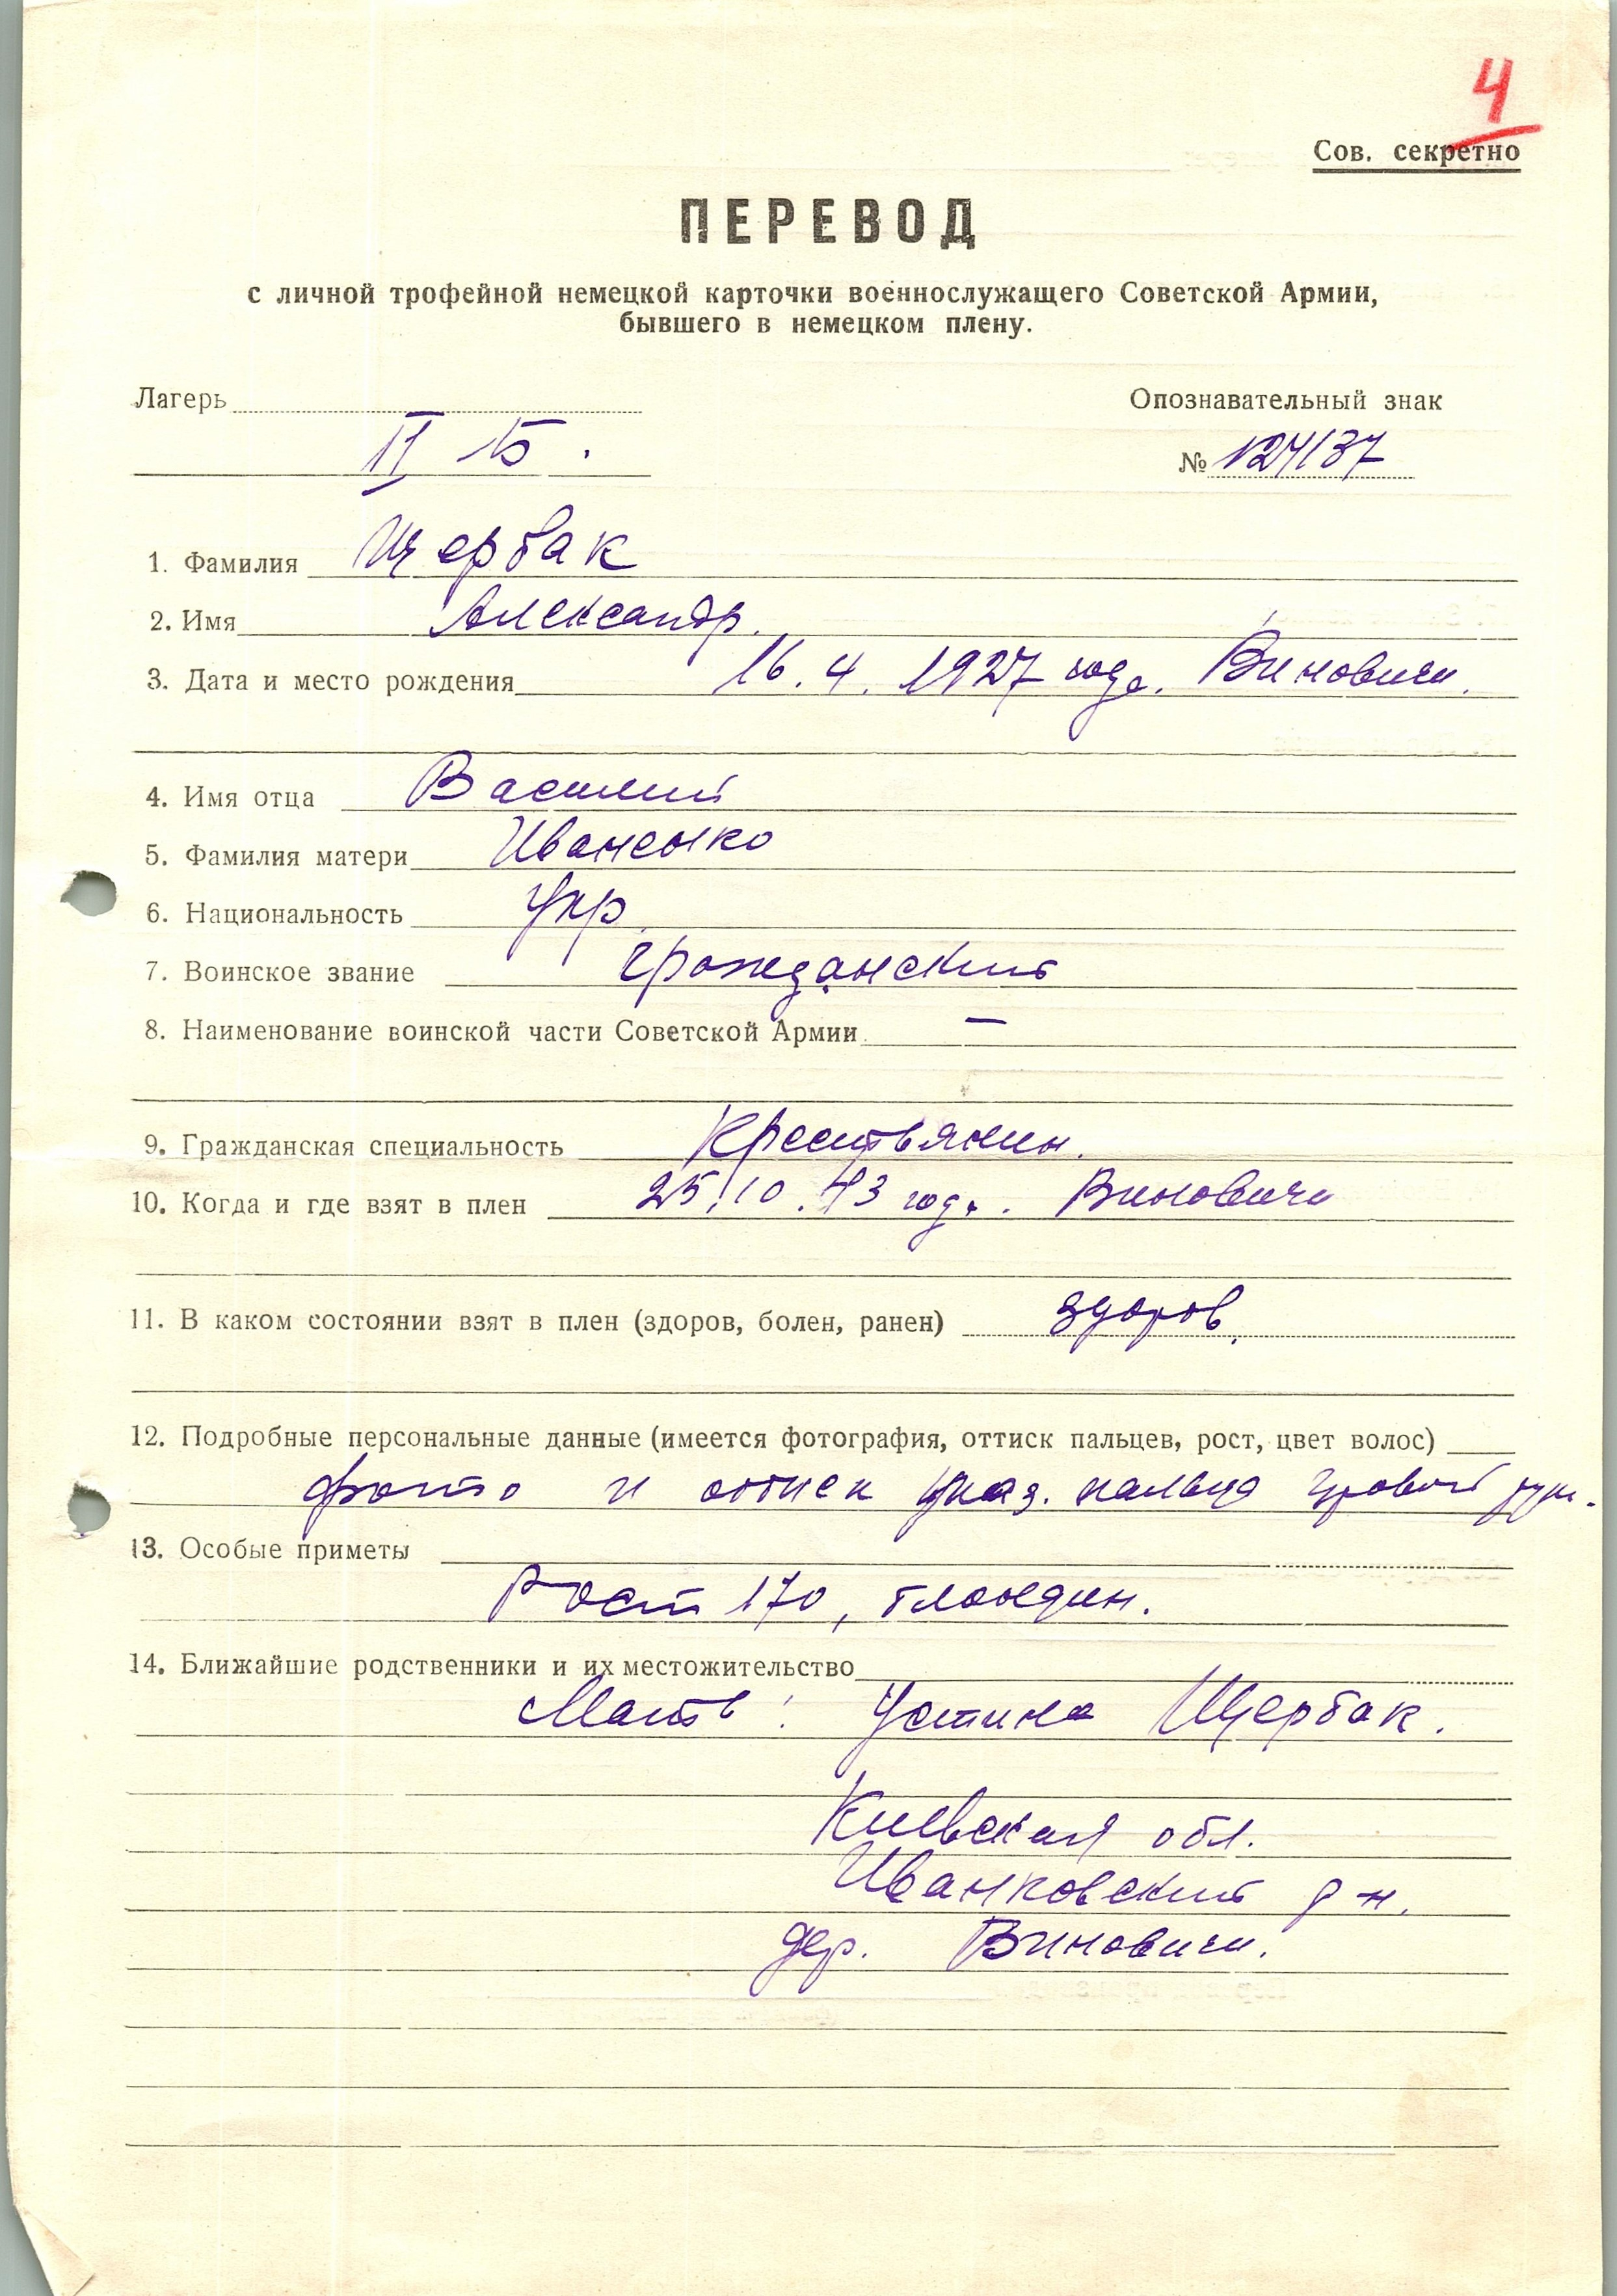 4
Сов. секретно
ПЕРЕВОД
с личной трофейной немецкой карточки военнослужащего Советской Армии,
бывшего в немецком плену.
Лагерь
Опознавательный знак
II Б.
№ 124137
1. Фамилия Щербак
2. Имя Александр.
3. Дата и место рождения 16.4.1927 года. Виновичи.
4. Имя отца Василий
5. Фамилия матери Иваненко
6. Национальность Укр.
7. Воинское звание гражданский
8. Наименование воинской части Советской Армии —
9. Гражданская специальность Крестьянин.
10. Когда и где взят в плен 25.10.43 года. Виновичи
11. В каком состоянии взят в плен (здоров, болен, ранен) здоров.
12. Подробные персональные данные (имеется фотография, оттиск пальцев, рост, цвет волос)
фото и оттиск указ. пальца правой рук.
13. Особые приметы
Рост 170, блондин.
14. Ближайшие родственники и их местожительство
Мать: Устина Щербак.
Киевская обл.
Иванковский р-н.
дер. Виновичи.